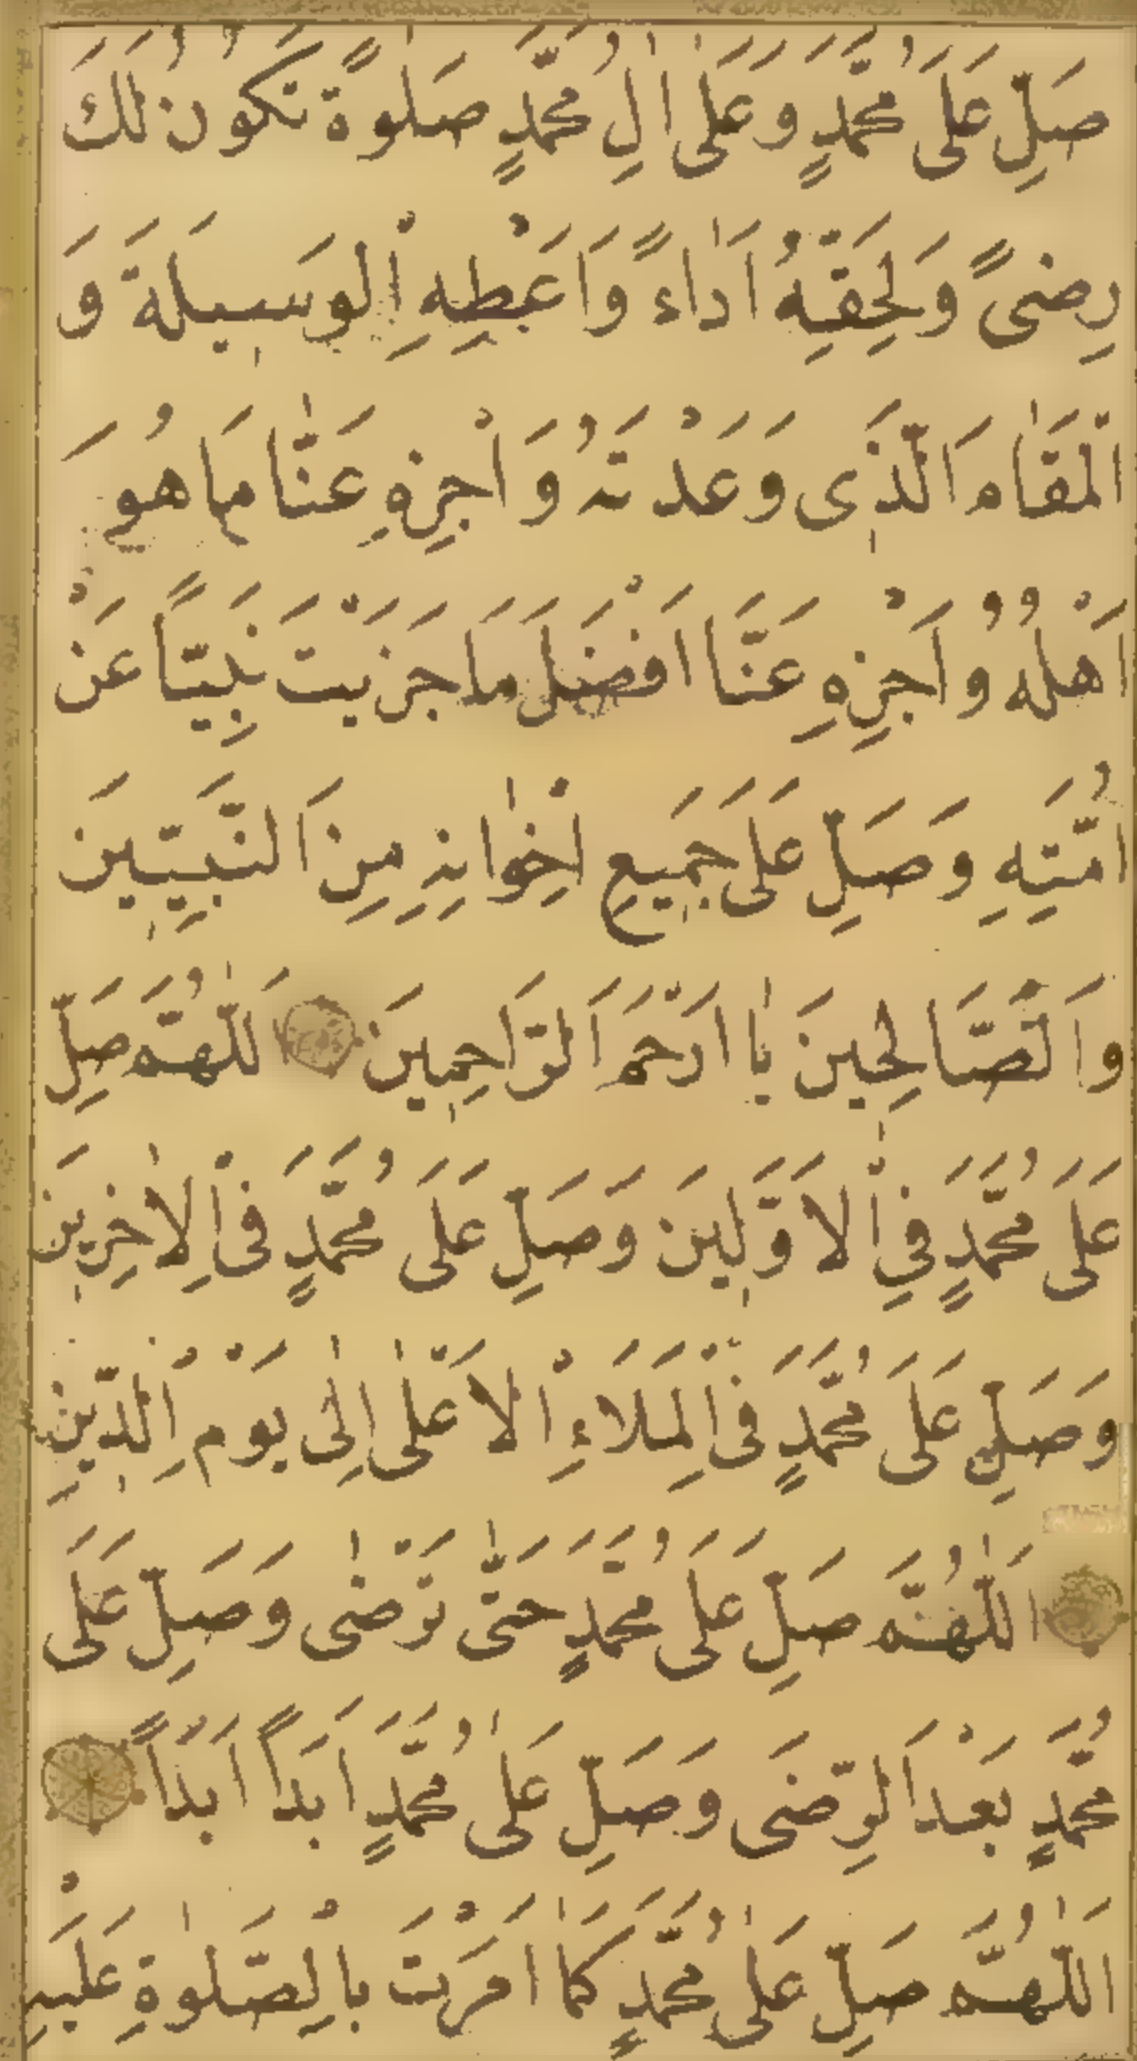 صَلِّ عَلَى مُحَمَّدٍ وَعَلَى اٰلِ مُحَمَّدٍ صَلٰوةً تَكُونُ لَكَ
رِضىً وَلِحَقِّهٖ اَدَاءً وَاَعْطِهِ الْوَسِيلَةَ وَ
الْمَقَامَ الَّذِى وَعَدْتَهُ وَاَجْزِهِ عَنَّا مَا هُوَ
اَهْلُهُ وَاَجْزِهِ عَنَّا اَفْضَلَ مَا جَزَيْتَ نَبِيّاً عَنْ
اُمَّتِهِ وَصَلِّ عَلَى جَمِيعِ اِخْوَانِهِ مِنَ النَّبِيِّينَ
وَالصَّالِحِينَ يَا اَرْحَمَ الرَّاحِمِينَ اَللّٰهُمَّ صَلِّ
عَلَى مُحَمَّدٍ فِى الْاَوَّلِينَ وَصَلِّ عَلَى مُحَمَّدٍ فِى الْاٰخِرِينَ
وَصَلِّ عَلَى مُحَمَّدٍ فِى الْمَلَاءِ الْاَعْلٰى اِلٰى يَوْمِ الدِّينِ
اَللّٰهُمَّ صَلِّ عَلَى مُحَمَّدٍ حَتّٰى تَرْضٰى وَصَلِّ عَلَى
مُحَمَّدٍ بَعْدَ الرِّضَى وَصَلِّ عَلٰى مُحَمَّدٍ اَبَداً اَبَداً
اَللّٰهُمَّ صَلِّ عَلٰى مُحَمَّدٍ كَمَا اَمَرْتَ بِالصَّلٰوةِ عَلَيْهِ